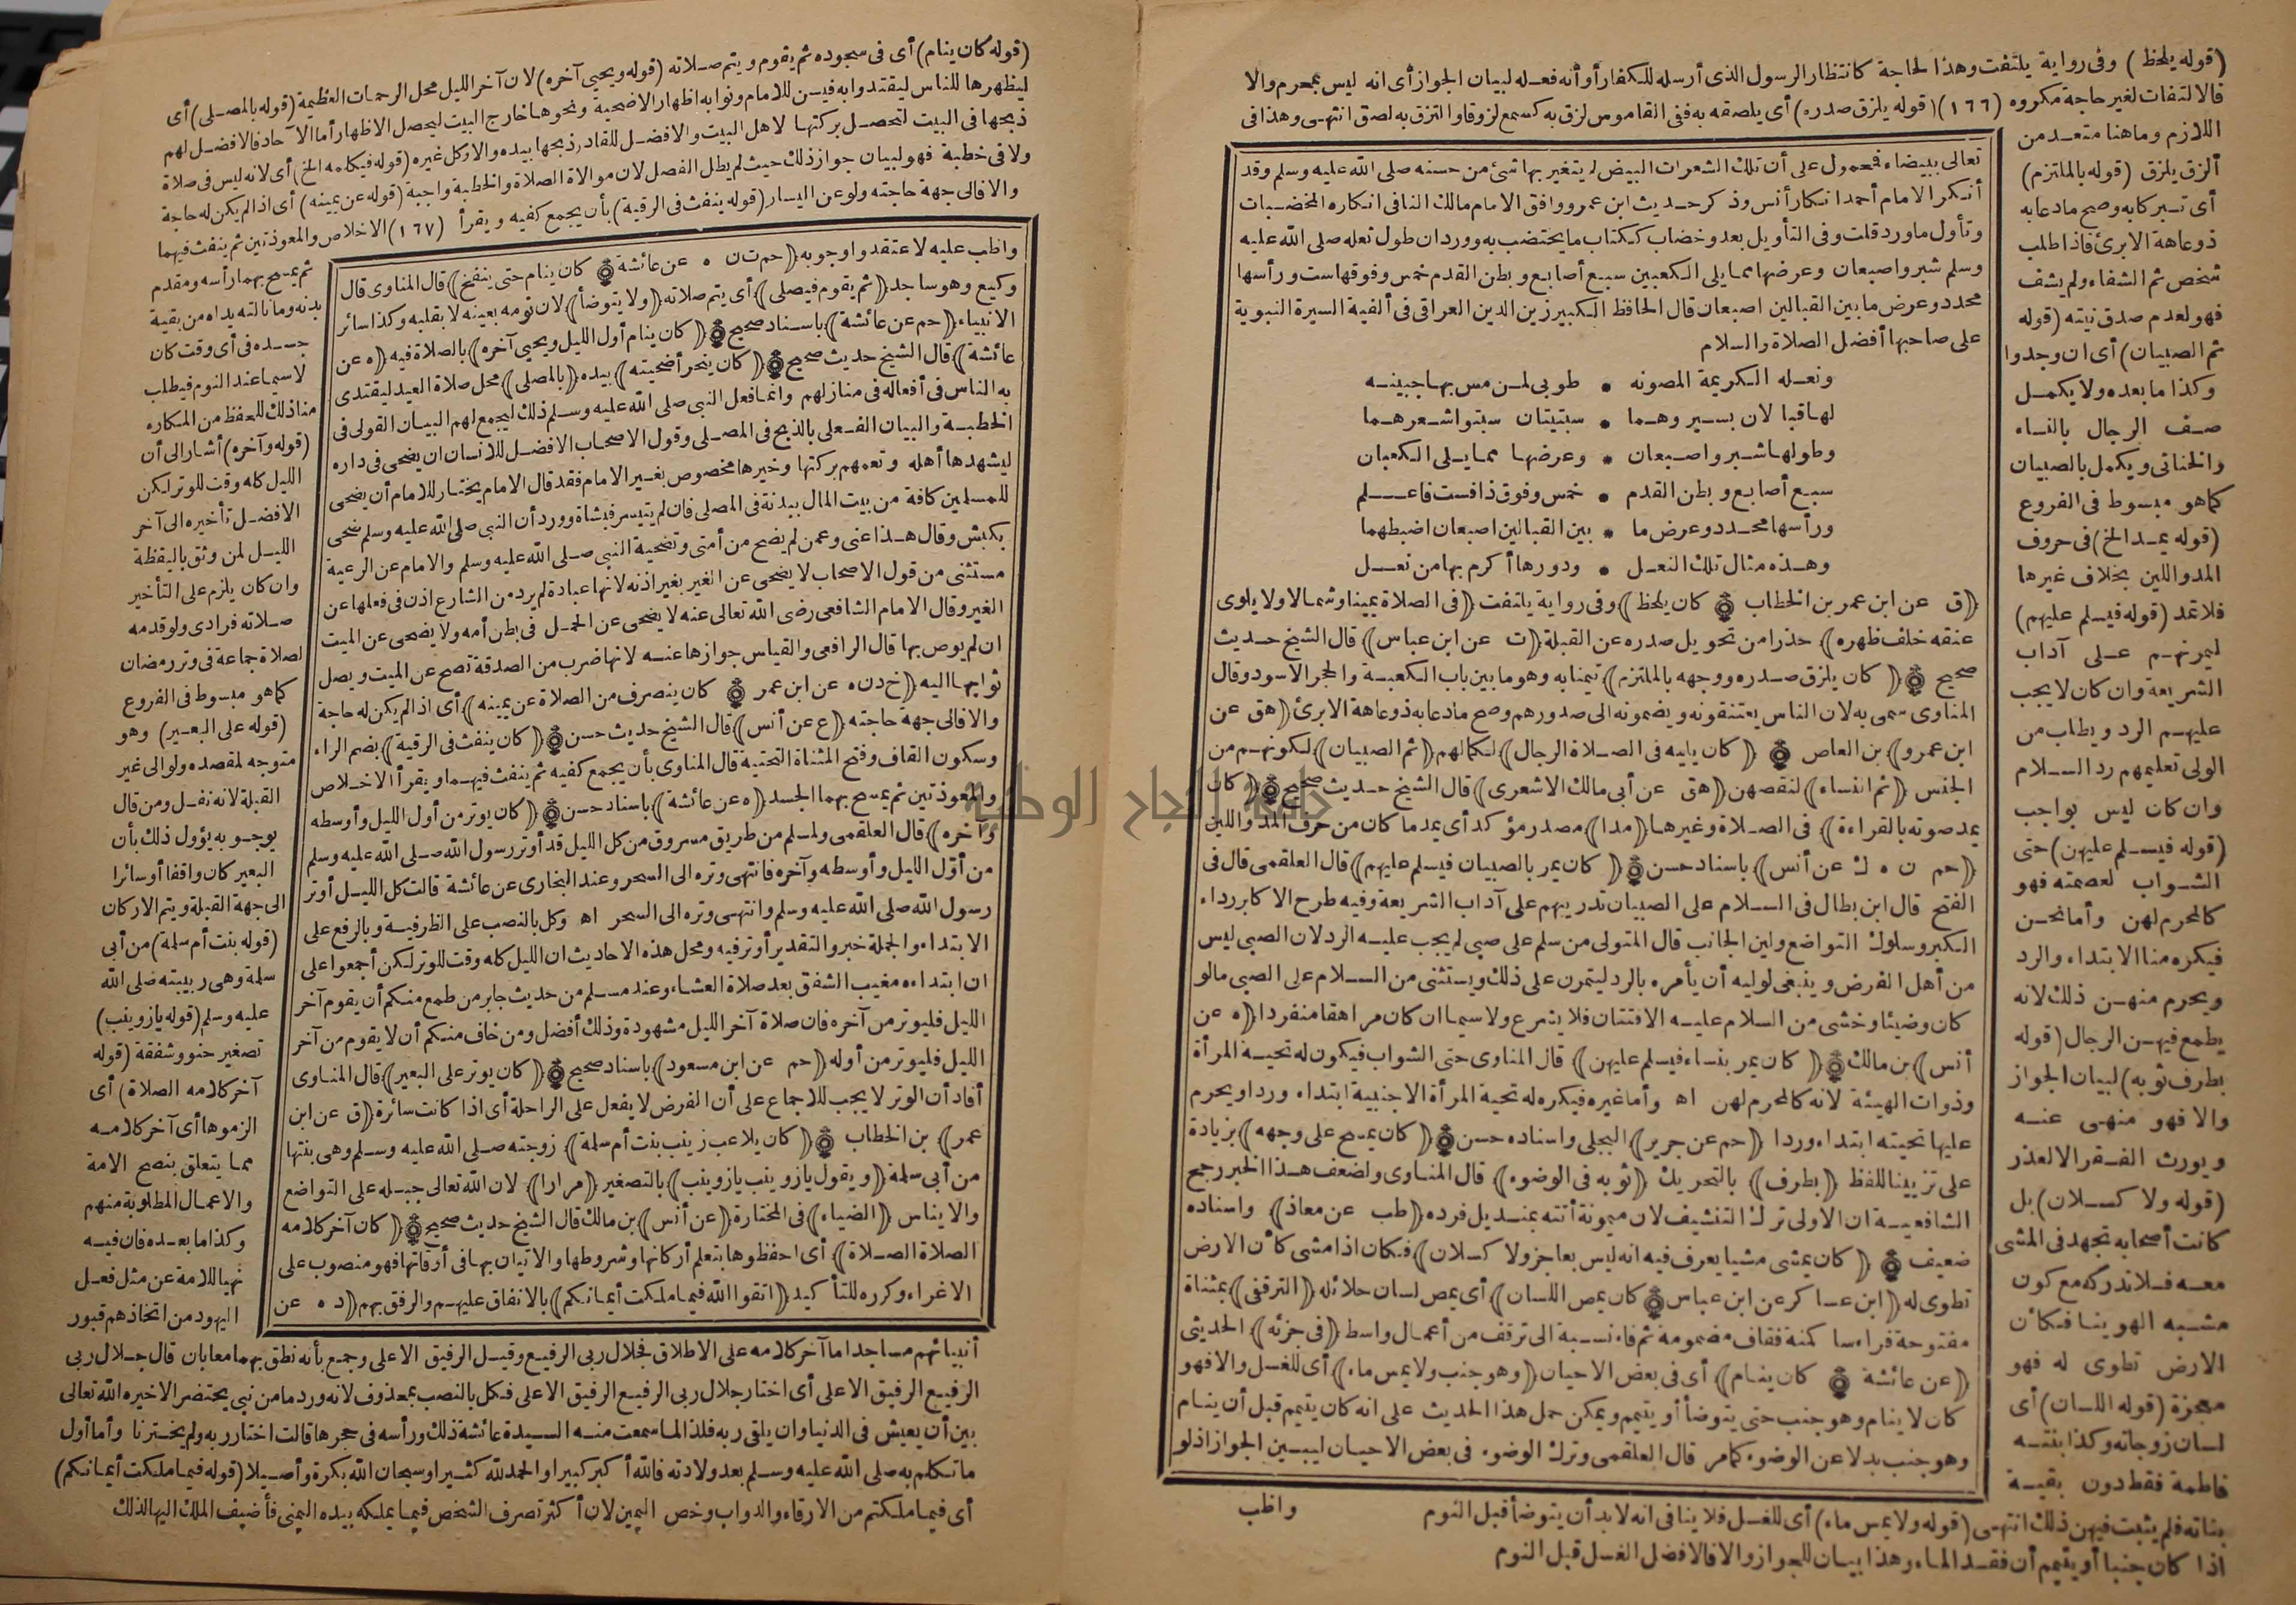 (قوله يلحظ) وفى رواية يلتفت وهذا لحاجة كانتظار الرسول الذى أرسله للكفار أو أنه فعله لبيان الجواز أى انه ليس بمحرم والا
فالالتفات لغير حاجة مكروه (١٦٦) (قوله يلزق صدره) أى يلصقه به ففى القاموس لزق به كسمع لزوقا والتزق به لصق انتهى وهذا فى
اللازم وما هنا متعد من
ألزق يلزق (قوله بالملتزم)
أى تبركا به وصح ما دعا به
ذو عاهة الا برئ فاذا طلب
شخص ثم الشفاء ولم يشف
فهو لعدم صدق نيته (قوله
ثم الصبيان) أى ان وجدوا
وكذا ما بعده ولا يكمل
صف الرجال بالنساء
والخناثى ويكمل بالصبيان
كما هو مبسوط فى الفروع
(قوله يمد الخ) فى حروف
المد واللين بخلاف غيرها
فلا تمد (قوله فيسلم عليهم)
ليمرنهم على آداب
الشريعة وان كان لا يجب
عليهم الرد ويطلب من
الولى تعليمهم رد السلام
وان كان ليس بواجب
(قوله فيسلم عليهن) حتى
الشواب لعصمته فهو
كالمحرم لهن وأما نحن
فيكره منا الابتداء والرد
ويحرم منهن ذلك لانه
يطمع فيهن الرجال (قوله
بطرف ثوبه) لبيان الجواز
والا فهو منهى عنه
ويورث الفقر الا لعذر
(قوله ولا كسلان) بل
كانت أصحابه تجهد فى المشى
معه فلا تدركه مع كون
مشيه الهوينا فكأن
الارض تطوى له فهو
معجزة (قوله اللسان) أى
لسان زوجاته وكذا بنته
فاطمة فقط دون بقية
بناته فلم يثبت فيهن ذلك انتهى (قوله ولا يمس ماء) أى للغسل فلا ينافى انه لا بد أن يتوضأ قبل النوم
اذا كان جنبا أو يتيمم أن فقد الماء وهذا بيان للجواز والا فالافضل الغسل قبل النوم
تعالى ببيضاء فمحمول على أن تلك الشعرات البيض لم يتغير بها شئ من حسنه صلى الله عليه وسلم وقد
أنكر الامام أحمد انكار أنس وذكر حديث ابن عمر ووافق الامام مالك أنسا فى انكاره الخضاب
وتأول ما ورد قلت وفى التأويل بعد وخضاب ككتاب ما يختضب به وورد ان طول نعله صلى الله عليه
وسلم شبر واصبعان وعرضها مما يلى الكعبين سبع أصابع وبطن القدم خمس وفوقها ست ورأسها
محدد وعرض ما بين القبالين اصبعان قال الحافظ الكبير زين الدين العراقى فى ألفية السيرة النبوية
على صاحبها أفضل الصلاة والسلام
ونعله الكريمة المصونه * طوبى لمن مس بها جبينه
لها قبالان بسير وهما * سبتيتان سبتوا شعرهما
وطولها شبر واصبعان * وعرضها مما يلى الكعبان
سبع أصابع وبطن القدم * خمس وفوق ذا فست فاعلم
ورأسها محدد وعرض ما * بين القبالين اصبعان اضبطهما
وهذه مثال تلك النعل * ودورها أكرم بها من نعل
(ق عن ابن عمر بن الخطاب ۞ كان يلحظ) وفى رواية يلتفت (فى الصلاة يمينا وشمالا ولا يلوى
عنقه خلف ظهره) حذرا من تحويل صدره عن القبلة (ت عن ابن عباس) قال الشيخ حديث
صحيح ۞ (كان يلزق صدره ووجهه بالملتزم) تيمنا به وهو ما بين باب الكعبة والحجر الاسود وقال
المناوى سمى به لان الناس يعتنقونه ويضمونه الى صدورهم وصح ما دعا به ذو عاهة الا برئ (هق عن
ابن عمرو) بن العاص ۞ (كان يليه فى الصلاة الرجال) لكمالهم (ثم الصبيان) لكونهم من
الجنس (ثم النساء) لنقصهن (هق عن أبى مالك الاشعرى) قال الشيخ حديث صحيح ۞ (كان
يمد صوته بالقراءة) فى الصلاة وغيرها (مدا) مصدر مؤكد أى يمد ما كان من حرف المد واللين
(حم ن ه ك عن أنس) باسناد حسن ۞ (كان يمر بالصبيان فيسلم عليهم) قال العلقمى قال فى
الفتح قال ابن بطال فى السلام على الصبيان تدريبهم على آداب الشريعة وفيه طرح الاكابر رداء
الكبر وسلوك التواضع ولين الجانب قال المتولى من سلم على صبى لم يجب عليه الرد لان الصبى ليس
من أهل الفرض وينبغى لوليه أن يأمره بالرد ليتمرن على ذلك ويستثنى من السلام على الصبى ما لو
كان وضيئا وخشى من السلام عليه الافتتان فلا يشرع ولا سيما ان كان مراهقا منفردا (ه عن
أنس) بن مالك ۞ (كان يمر بنساء فيسلم عليهن) قال المناوى حتى الشواب فيكون له تحية المرأة
وذوات الهيئة لانه كالمحرم لهن اه وأما غيره فيكره له تحية المرأة الاجنبية ابتداء وردا ويحرم
عليها تحيته ابتداء وردا (حم عن جرير) البجلى واسناده حسن ۞ (كان يمسح على وجهه) بزيادة
على تزيينا للفظ (بطرف) بالتحريك (ثوبه فى الوضوء) قال المناوى ولضعف هذا الخبر رجح
الشافعية ان الاولى ترك التنشيف لان ميمونة أتته بمنديل فرده (طب عن معاذ) واسناده
ضعيف ۞ (كان يمشى مشيا يعرف فيه انه ليس بعاجز ولا كسلان) فكان اذا مشى كأن الارض
تطوى له (ابن عساكر عن ابن عباس ۞ كان يمص اللسان) أى يمص لسان حلائله (الترقفى) بمثناة
مفتوحة فراء ساكنة فقاف مضمومة ثم فاء نسبة الى ترقف من أعمال واسط (فى جزئه) الحديثى
(عن عائشة ۞ كان ينام) أى فى بعض الاحيان (وهو جنب ولا يمس ماء) أى للغسل والا فهو
كان لا ينام وهو جنب حتى يتوضأ أو يتيمم ويمكن حمل هذا الحديث على انه كان يتيمم قبل أن ينام
وهو جنب بدلا عن الوضوء كما مر قال العلقمى وترك الوضوء فى بعض الاحيان ليبين الجواز اذ لو
واظب
(قوله كان ينام) أى فى سجوده ثم يقوم ويتم صلاته (قوله ويحيى آخره) لان آخر الليل محل الرحمات العظيمة (قوله بالمصلى) أى
ليظهرها للناس ليقتدوا به فيسن للامام ونوابه اظهار الاضحية ونحوها خارج البيت ليحصل الاظهار أما الآحاد فالافضل لهم
ذبحها فى البيت لتحصل بركتها لاهل البيت والافضل للقادر ذبحها بيده والا وكل غيره (قوله فيكلمه الخ) أى لانه ليس فى صلاة
ولا فى خطبة فهو لبيان جواز ذلك حيث لم يطل الفصل لان موالاة الصلاة والخطبة واجبة (قوله عن يمينه) أى اذا لم يكن له حاجة
والا فالى جهة حاجته ولو عن اليسار (قوله ينفث فى الرقية) بأن يجمع كفيه ويقرأ (١٦٧) الاخلاص والمعوذتين ثم ينفث فيهما
ثم يمسح بهما رأسه ومقدم
بدنه وما نالته يداه من بقية
جسده فى أى وقت كان
لا سيما عند النوم فيطلب
منا ذلك للحفظ من المكاره
(قوله وآخره) أشار الى أن
الليل كله وقت للوتر لكن
الافضل تأخيره الى آخر
الليل لمن وثق باليقظة
وان كان يلزم على التأخير
صلاته فرادى ولو قدمه
لصلاة جماعة فى وتر رمضان
كما هو مبسوط فى الفروع
(قوله على البعير) وهو
متوجه لمقصده ولو الى غير
القبلة لانه نفل ومن قال
بوجوبه يؤول ذلك بأن
البعير كان واقفا أو سائرا
الى جهة القبلة ويتم الاركان
(قوله بنت أم سلمة) من أبى
سلمة وهى ربيبته صلى الله
عليه وسلم (قوله يا زوينب)
تصغير حنو وشفقة (قوله
آخر كلامه الصلاة) أى
الزموها أى آخر كلامه
مما يتعلق بنصح الامة
والاعمال المطلوبة منهم
وكذا ما بعده فان فيه
نهيا للامة عن مثل فعل
اليهود من اتخاذهم قبور
أنبيائهم مساجد اما آخر كلامه على الاطلاق فجلال ربى الرفيع وقيل الرفيق الاعلى وجمع بأنه نطق بهما معا بان قال جلال ربى
الرفيع الرفيق الاعلى أى اختار جلال ربى الرفيع الرفيق الاعلى فكل بالنصب بمحذوف لانه ورد ما من نبى يحتضر الا خيره الله تعالى
بين أن يعيش فى الدنيا وان يلقى ربه فلذا لما سمعت منه السيدة عائشة ذلك ورأسه فى حجرها قالت اختار ربه ولم يخترنا وأما أول
ما تكلم به صلى الله عليه وسلم بعد ولادته فالله أكبر كبيرا والحمد لله كثيرا وسبحان الله بكرة وأصيلا (قوله فيما ملكت أيمانكم)
أى فيما ملكتم من الارقاء والدواب وخص اليمين لان أكثر تصرف الشخص فيما يملكه بيده اليمنى فأضيف الملك اليها لذلك
واظب عليه لاعتقدوا وجوبه (حم ت ن ه عن عائشة ۞ كان ينام حتى ينفخ) قال المناوى قال
وكيع وهو ساجد (ثم يقوم فيصلى) أى يتم صلاته (ولا يتوضأ) لان نومه بعينه لا بقلبه وكذا سائر
الانبياء (حم عن عائشة) باسناد صحيح ۞ (كان ينام أول الليل ويحيى آخره) بالصلاة فيه (ه عن
عائشة) قال الشيخ حديث صحيح ۞ (كان ينحر أضحيته) بيده (بالمصلى) محل صلاة العيد ليقتدى
به الناس فى أفعاله فى منازلهم وانما فعل النبى صلى الله عليه وسلم ذلك ليجمع لهم البيان القولى فى
الخطبة والبيان الفعلى بالذبح فى المصلى وقول الاصحاب الافضل للانسان ان يضحى فى داره
ليشهدها أهله وتعمهم بركتها وخيرها مخصوص بغير الامام فقد قال الامام يختار للامام أن يضحى
للمسلمين كافة من بيت المال ببدنة فى المصلى فان لم يتيسر فبشاة وورد أن النبى صلى الله عليه وسلم ضحى
بكبش وقال هذا عنى وعمن لم يضح من أمتى وتضحية النبى صلى الله عليه وسلم والامام عن الرعية
مستثنى من قول الاصحاب لا يضحى عن الغير بغير اذنه لانها عبادة لم يرد من الشارع اذن فى فعلها عن
الغير وقال الامام الشافعى رضى الله تعالى عنه لا يضحى عن الحمل فى بطن أمه ولا يضحى عن الميت
ان لم يوص بها قال الرافعى والقياس جوازها عنه لانها ضرب من الصدقة تصح عن الميت ويصل
ثوابها اليه (خ د ن ه عن ابن عمر ۞ كان ينصرف من الصلاة عن يمينه) أى اذا لم يكن له حاجة
والا فالى جهة حاجته (ع عن أنس) قال الشيخ حديث حسن ۞ (كان ينفث فى الرقية) بضم الراء
وسكون القاف وفتح المثناة التحتية قال المناوى بأن يجمع كفيه ثم ينفث فيهما ويقرأ الاخلاص
والمعوذتين ثم يمسح بهما الجسد (ه عن عائشة) باسناد حسن ۞ (كان يوتر من أول الليل وأوسطه
وآخره) قال العلقمى ولمسلم من طريق مسروق من كل الليل قد أوتر رسول الله صلى الله عليه وسلم
من أول الليل وأوسطه وآخره فانتهى وتره الى السحر وعند البخارى عن عائشة قالت كل الليل أوتر
رسول الله صلى الله عليه وسلم وانتهى وتره الى السحر اه وكل بالنصب على الظرفية وبالرفع على
الابتداء والجملة خبر والتقدير أوتر فيه ومحل هذه الاحاديث ان الليل كله وقت للوتر لكن أجمعوا على
ان ابتداءه مغيب الشفق بعد صلاة العشاء وعند مسلم من حديث جابر من طمع منكم أن يقوم آخر
الليل فليوتر من آخره فان صلاة آخر الليل مشهودة وذلك أفضل ومن خاف منكم أن لا يقوم من آخر
الليل فليوتر من أوله (حم عن ابن مسعود) باسناد صحيح ۞ (كان يوتر على البعير) قال المناوى
أفاد أن الوتر لا يجب للاجماع على أن الفرض لا يفعل على الراحلة أى اذا كانت سائرة (ق عن ابن
عمر) بن الخطاب ۞ (كان يلاعب زينب بنت أم سلمة) زوجته صلى الله عليه وسلم وهى بنتها
من أبى سلمة (ويقول يا زوينب يا زوينب) بالتصغير (مرارا) لان الله تعالى جبله على التواضع
والايناس (الضياء) فى المختارة (عن أنس) بن مالك قال الشيخ حديث صحيح ۞ (كان آخر كلامه
الصلاة الصلاة) أى احفظوها بتعلم أركانها وشروطها والاتيان بها فى أوقاتها فهو منصوب على
الاغراء وكرره للتأكيد (اتقوا الله فيما ملكت أيمانكم) بالانفاق عليهم والرفق بهم (د ه عن
جامعة النجاح الوطنية